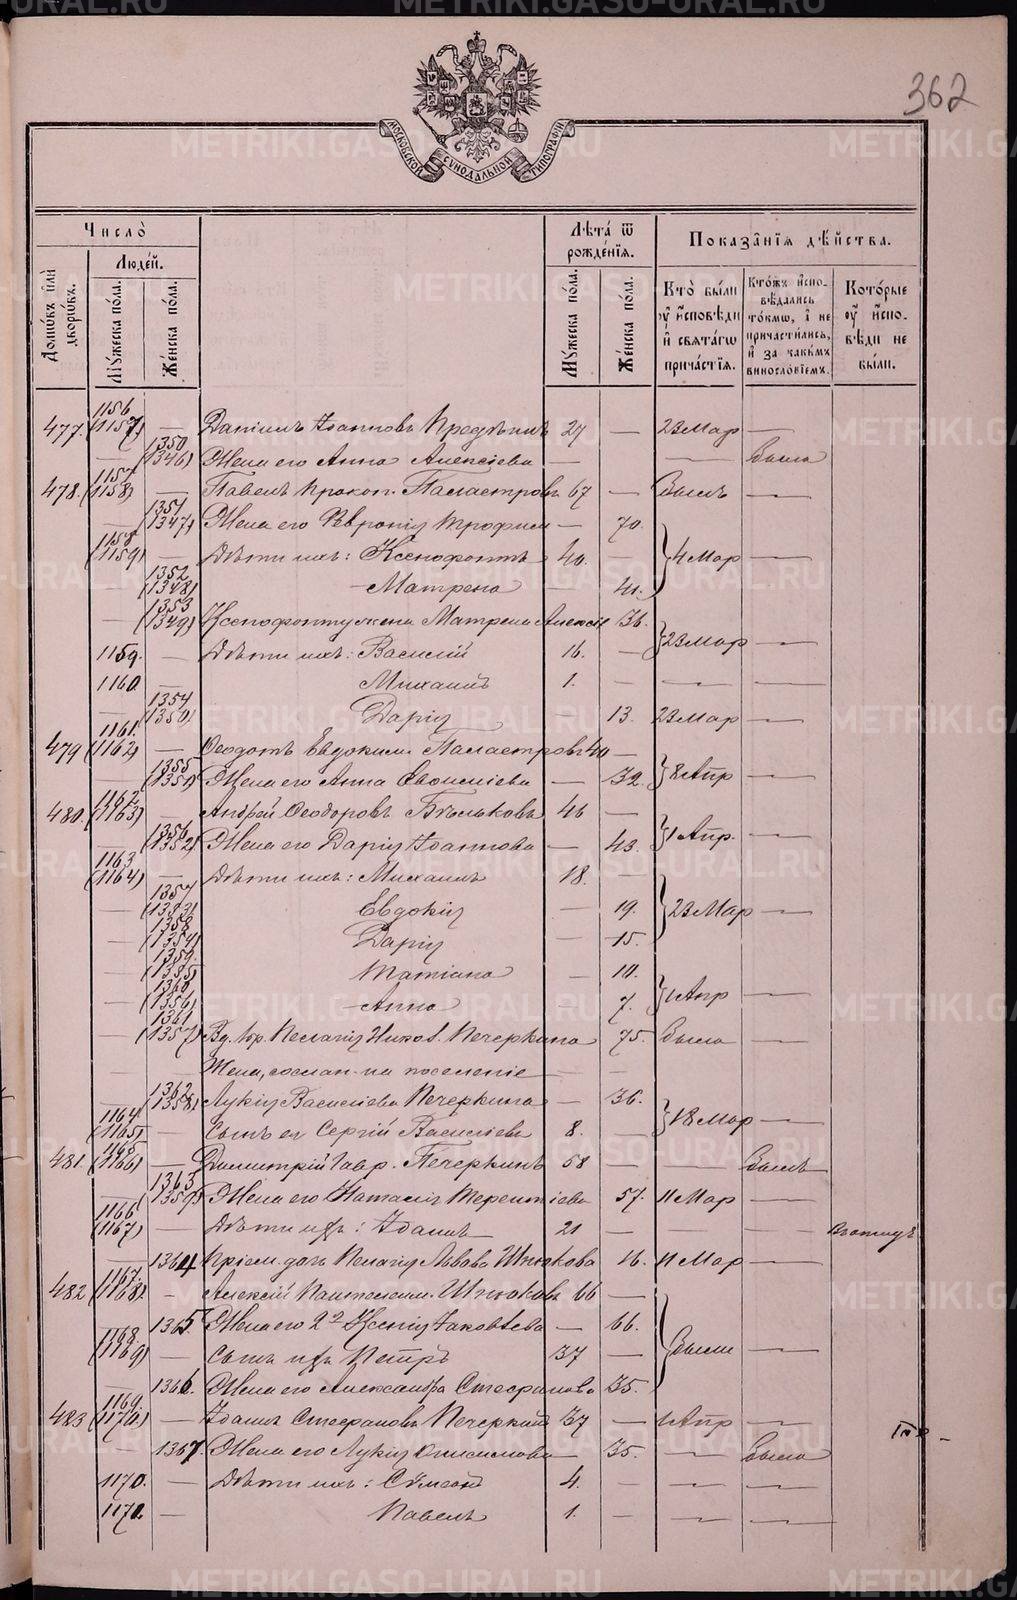 362
МОСКОВСКОЙ СѴНОДАЛЬНОЙ ТИПОГРАФІИ
Число̀
Лѣта̀ ѿ рожде́нїѧ.
Показа̑нїѧ дѣ́йства.
Домѡ́въ и҆лѝ дворѡ́въ.
Люде́й.
Мꙋ́жеска по́ла.
Же́нска по́ла.
Мꙋ́жеска по́ла.
Же́нска по́ла.
Кто̀ бы́ли ᲂу҆ и҆сповѣ́ди и҆ свѧта́гѡ прича́стїѧ.
Кто́жъ и҆спо-вѣ́дались то́кмѡ, а҆ не причасти́лись, и҆ за каки́мъ винословїемъ.
Кото́рые ᲂу҆ и҆спо-вѣ́ди не бы́ли.
477. 1156 (1157) — Даніилъ Іоанновъ 27 — 23 Мар —
— 1350 (1346) Жена его Анна Алексіева — — Была
478. 1157 (1158) — Павелъ Прокоп. Паластровъ 67 — Былъ —
— 1351 (1347) Жена его Февронія Трофим — 70.
1158 (1159) — Дѣти ихъ: Ксенофонтъ 40. — 4 Мар —
— 1352 (1348) Матрена — 41.
— 1353 (1349) Ксенофонту жена Матрена Алексіе 36.
1159. — Дѣти ихъ: Василій 16. — 23 Мар —
1160. — Михаилъ 1. — — —
— 1354 (1350) Дарія — 13. 23 Мар —
479 1161. (1162) — Ѳеодотъ Евдоким. Паластровъ 40 —
— 1355 (1351) Жена его Анна — 39. 8 Апр —
480. 1162 (1163) — Андрей Ѳеодоровъ Бѣльковъ 46 —
— 1356 (1352) Жена его Дарія Іоаннова — 43. 1 Апр. —
1163 (1164) — Дѣти ихъ: Михаилъ 18. —
— 1357 (1353) Евдокія — 19. 23 Мар —
— 1358 (1354) Дарія — 15.
— 1359. (1355) Татіана — 10.
— 1360 (1356) Анна — 7. 1 Апр —
— 1361 (1357) Вд. Пелагія Ников. Печеркина 75. Была —
Жена, сослан. на поселеніе — —
— 1362 (1358) Лукія Василіева Печеркина — 36.
1164 (1165) — Сынъ ея Сергій Василіевъ 8. — 18 Мар —
481. 1165 (1166) — Димитрій Гавр. Печеркинъ 58 — — Былъ
— 1363 (1359) Жена его Наталія Терентіева 57. 11 Мар —
1166 (1167) — Дѣти ихъ: Іоаннъ 21 — — —
— 1364 Пріем. дочь Пелагія Львова 16. 11 Мар —
482 1167. (1168). — Алексій 66 —
— 1365. Жена его 2ая Ксенія Іаковлева — 66.
1168. (1169) — Сынъ ихъ Петръ 37 — Были —
— 1366. Жена его Александра Стефанова 35.
483 1169. (1170) — Іоаннъ Стефановъ Печеркинъ 37 — 1 Апр —
— 1367. Жена его Лукія Онисимова — 35. — Была
1170. — Дѣти ихъ: Сѵмеонъ 4. — — —
1170. — Павелъ 1. — — —